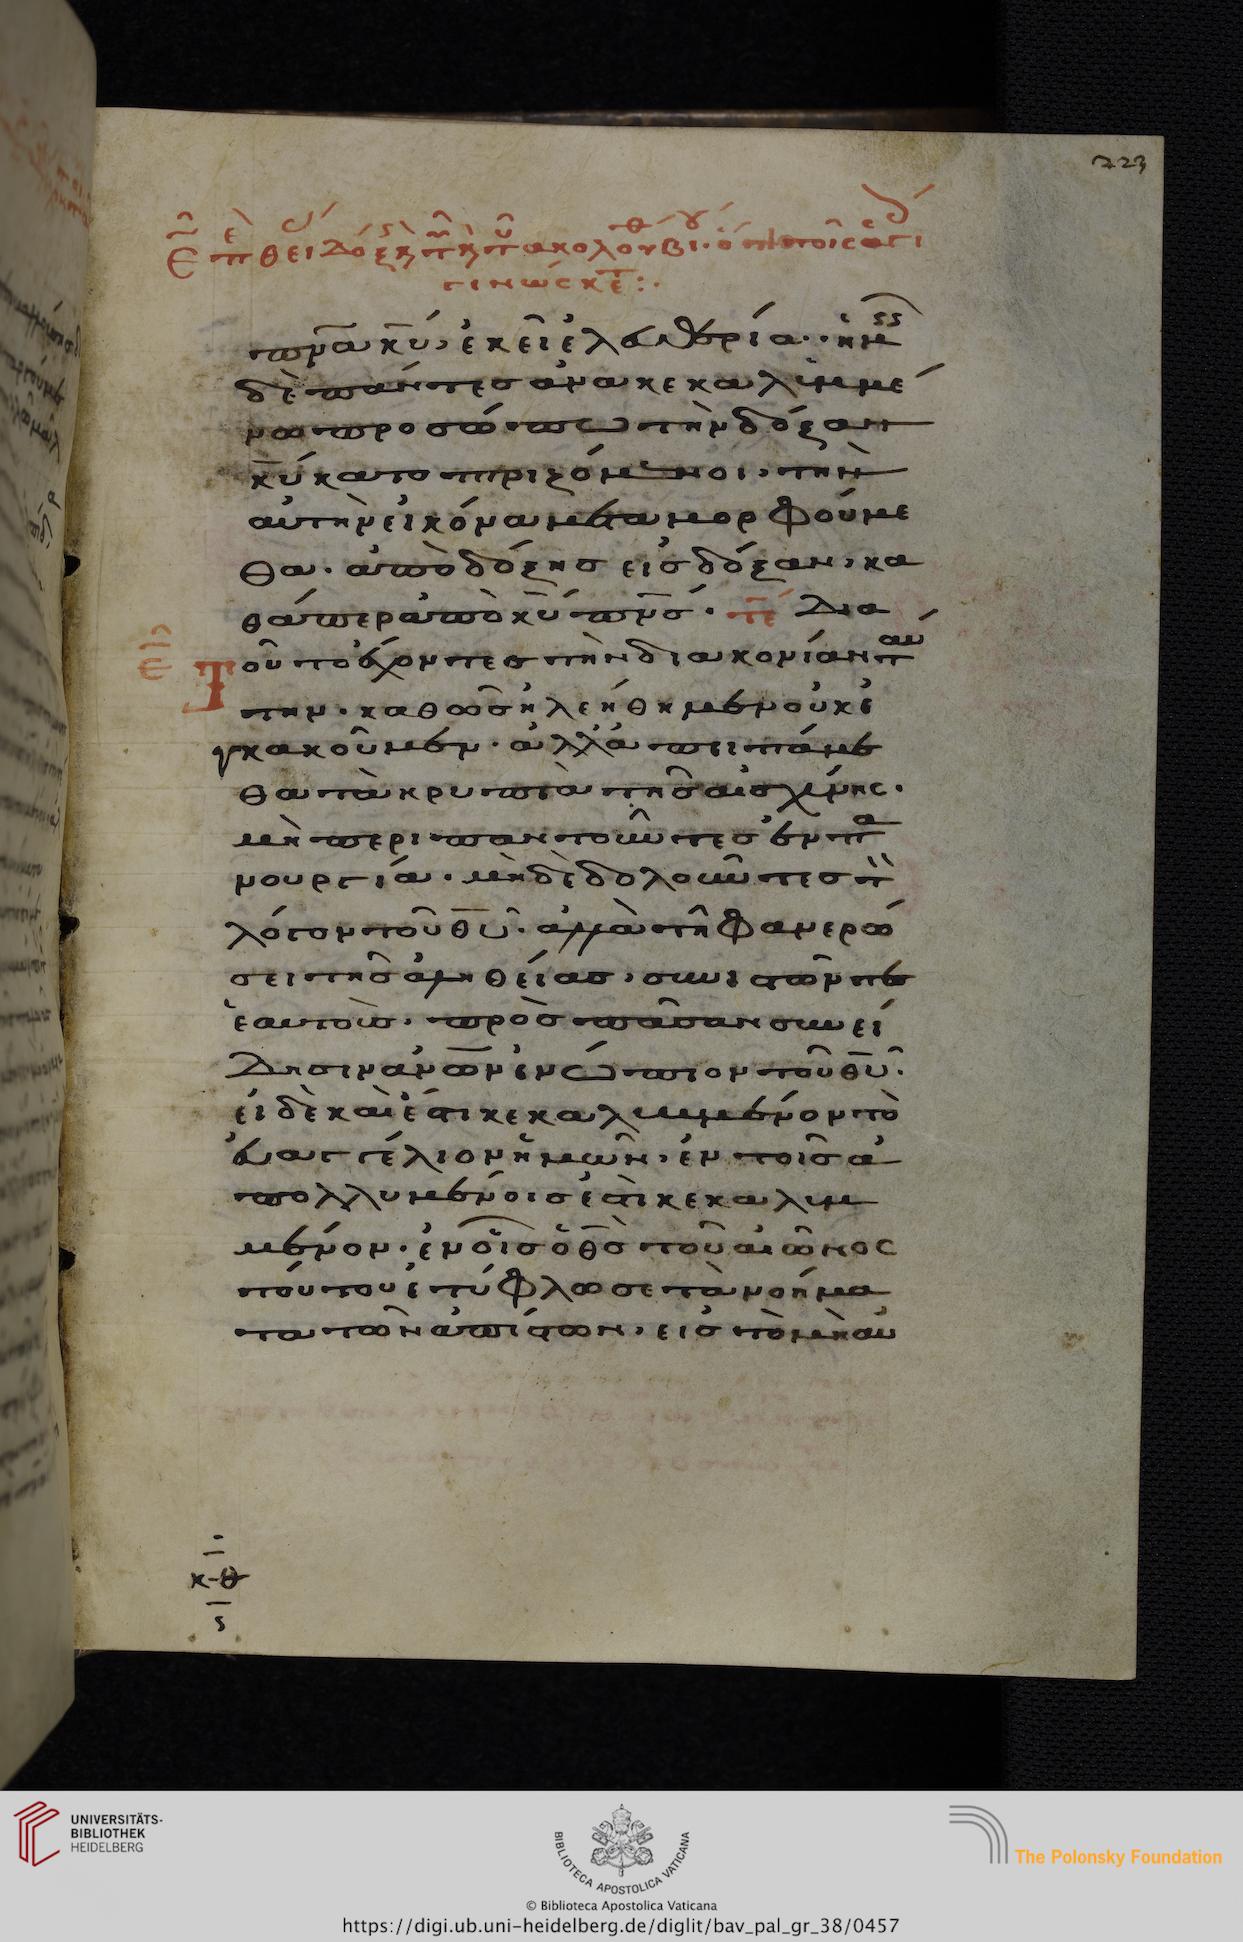 223
πνα κυ, ἐκεῖ ἐλευθερία· ἡμεῖς
δὲ πάντες ἀνακεκαλυμμέ
νω προσώπω τὴν δόξαν
κυ κατοπτριζόμενοι, τὴν
αὐτὴν εἰκόνα μεταμορφούμε
θα· ἀπὸ δόξης εἰς δόξαν, κα
θάπερ ἀπὸ κυ πνς· τε Δια
τοῦτο ἔχοντες τὴν διακονίαν ταύ
την· καθὼς ἠλεήθημεν οὐκ ἐ
γκακοῦμεν· ἀλλὰ ἀπειπάμε
θα τὰ κρυπτὰ τῆς αἰσχύνης·
μὴ περιπατοῦντες ἐν πα
νουργία· μὴδὲ δολοῦντες τὸν
λόγον τοῦ θυ· ἀλλὰ τῆ φανερώ
σει τῆς ἀληθείας, συνιστῶντε
ἑαυτοὺς· πρὸς πᾶσαν συνεί
δησιν ἀνων ἐνώπιον τοῦ θυ·
εἰ δὲ καὶ ἔστι κεκαλυμμένον τὸ
εὐαγγέλιον ἡμῶν, ἐν τοῖς ἀ
πολλυμένοις ἐστὶ κεκαλυμ
μένον· ἐν οἷς ὁ θς τοῦ αἰῶνος
τούτου ἐτύφλωσε τὰ νοήμα
τα τῶν ἀπίστων, εἰς τὸ μὴ αὐ
κθ
ς
UNIVERSITÄTS-
BIBLIOTHEK
HEIDELBERG
BIBLIOTECA APOSTOLICA VATICANA
The Polonsky Foundation
© Biblioteca Apostolica Vaticana
https://digi.ub.uni-heidelberg.de/diglit/bav_pal_gr_38/0457